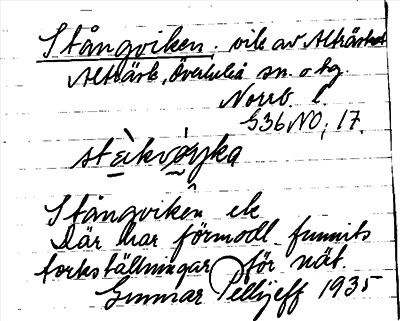 Stångviken; vik av Alträsket
Alträsk, Överluleå sn. o tg.
Norrb. l.
G36 NO; 17.
Stångviken ek
Där har förmodl. funnits
torkställningar för nät.
Gunnar Pellijeff 1935